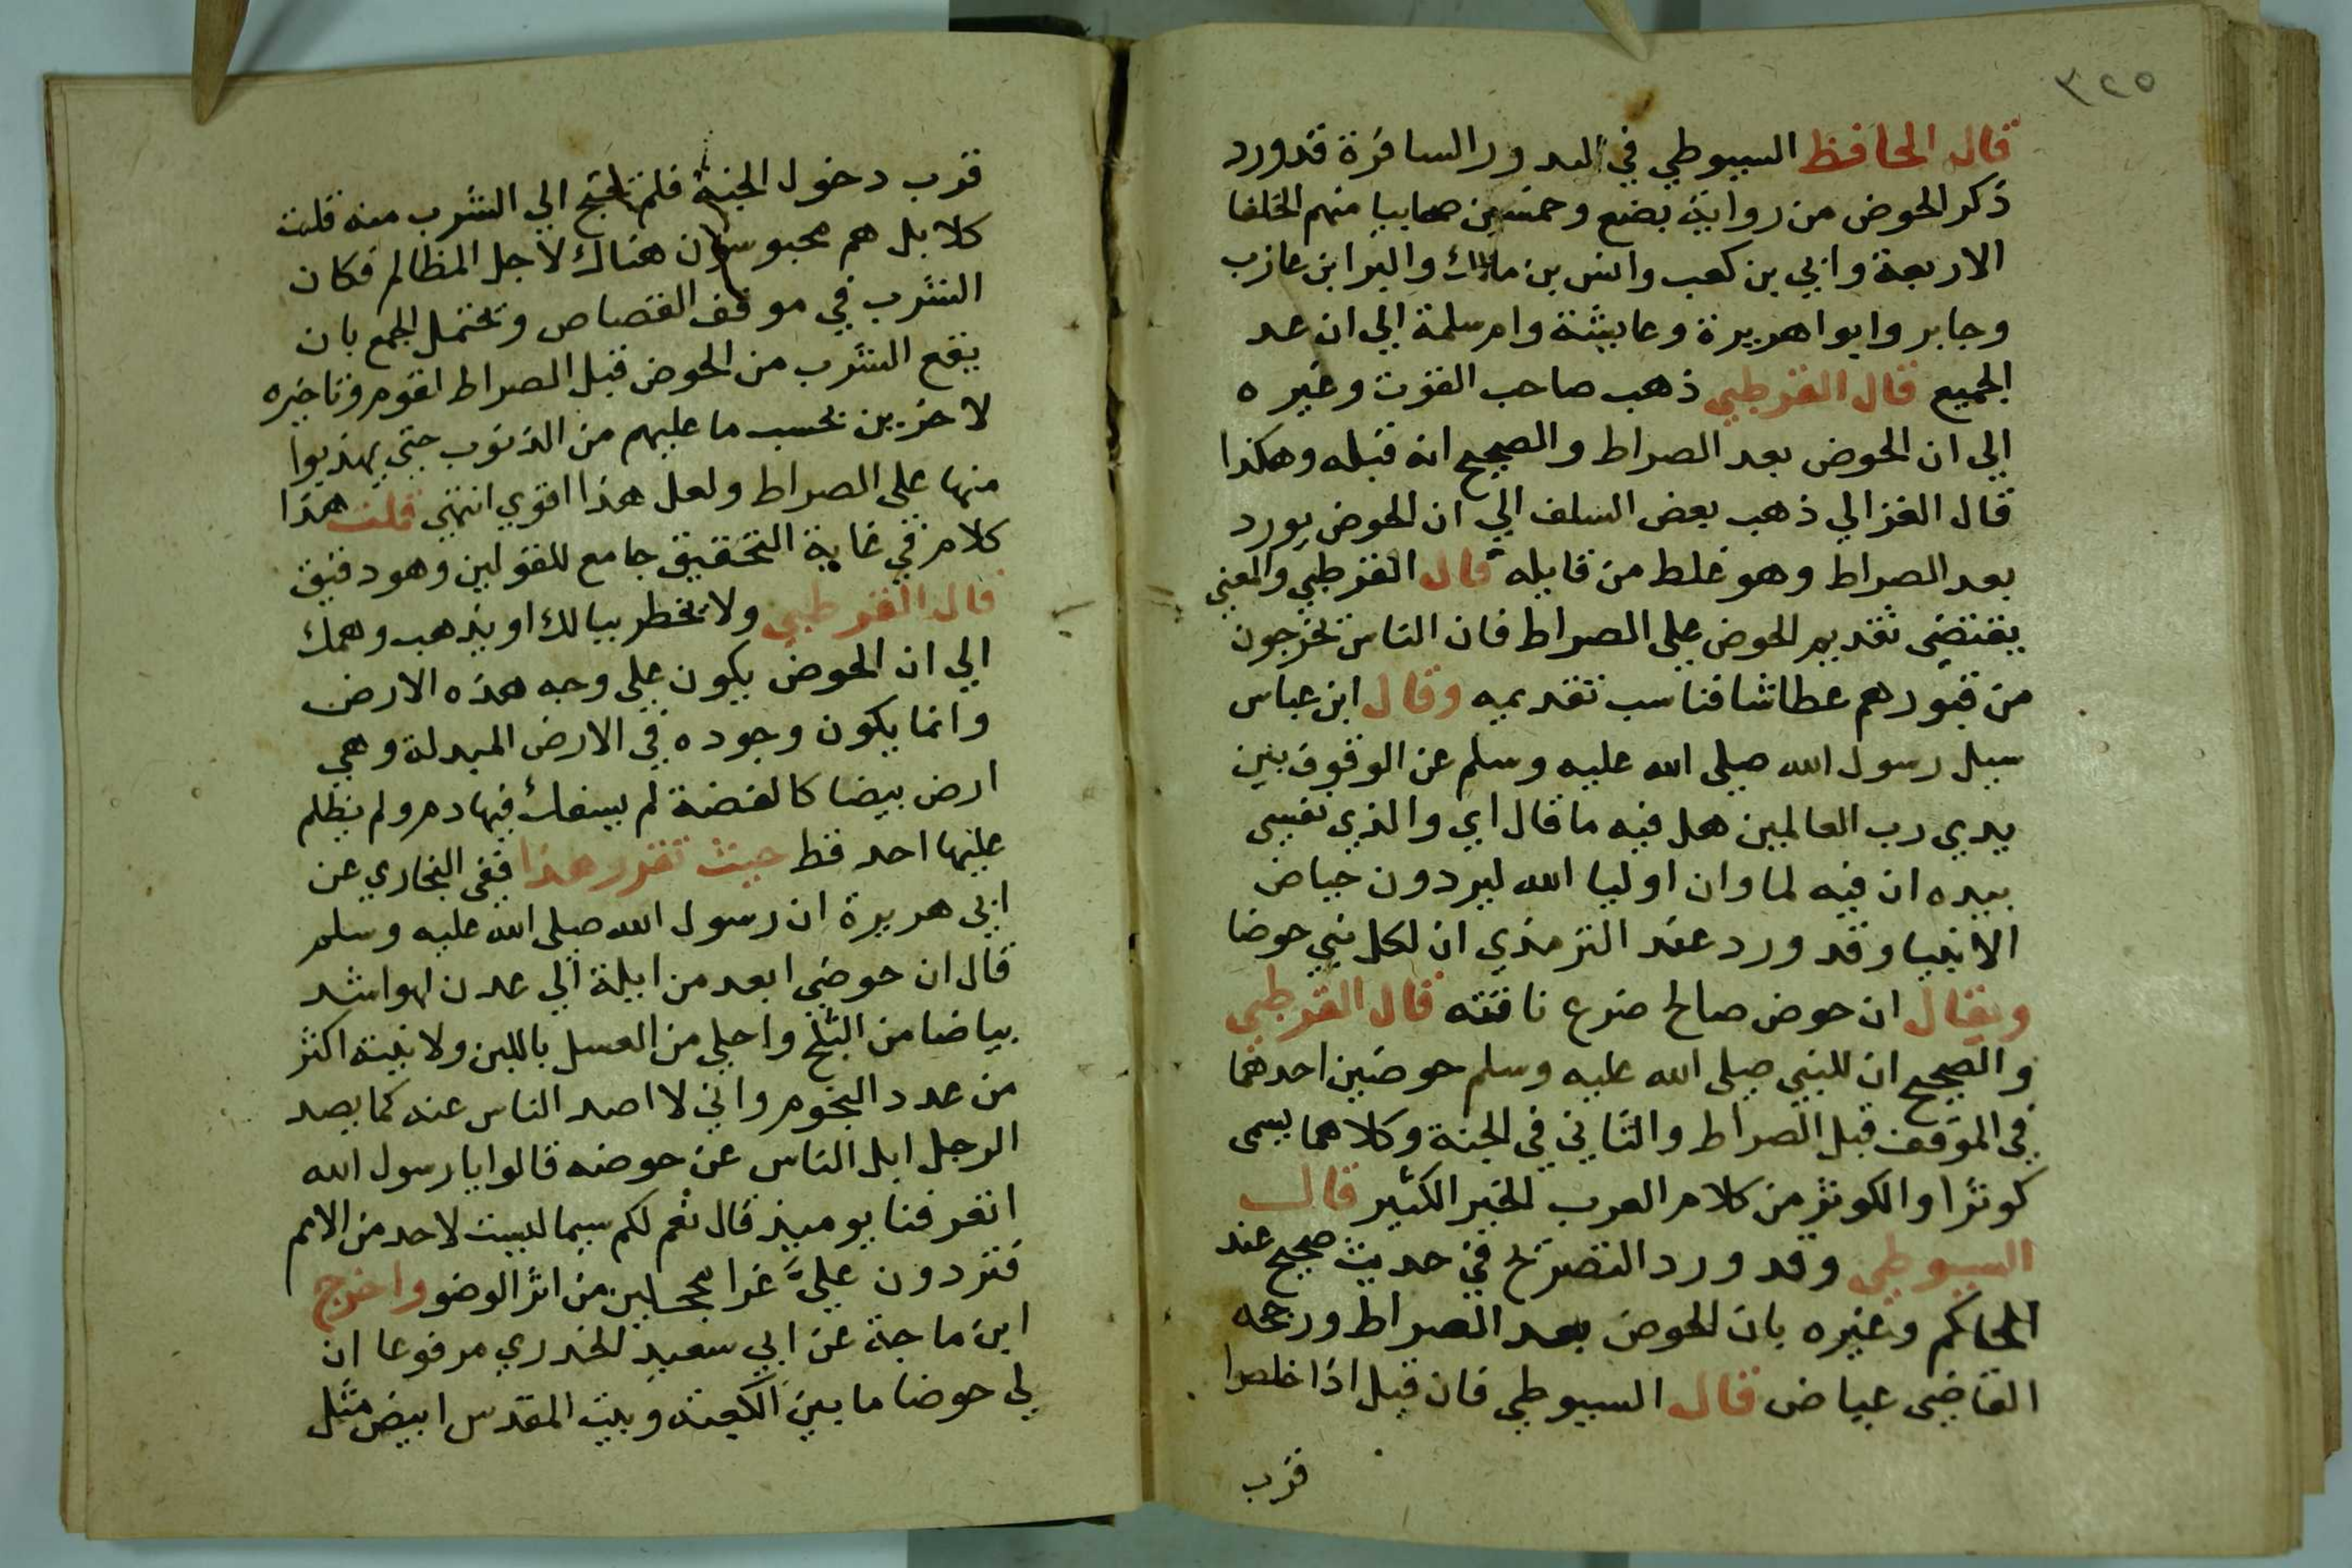 ٣٢٥
قال الحافظ السيوطي في البدور السافرة قد ورد
ذكر الحوض من رواية بضع وخمسين صحابيا منهم الخلفا
الاربعة وابي بن كعب وانس بن مالك والبرا بن عازب
وجابر وابوا هريرة وعايشة وام سلمة الي ان عد
الجميع قال القرطبي ذهب صاحب القوت وغيره
الي ان الحوض بعد الصراط والصحيح انه قبله وهكذا
قال الغزالي ذهب بعض السلف الي ان الحوض يورد
بعد الصراط وهو غلط من قايله قال القرطبي والمعني
يقتضي تقديم الحوض علي الصراط فان الناس يخرجون
من قبورهم عطاشا فناسب تقديمه وقال ابن عباس
سيل رسول الله صلي الله عليه وسلم عن الوقوف بين
يدي رب العالمين هل فيه ما قال اي والذي نفسي
بيده ان فيه لما وان اوليا الله ليردون حياض
الانبيا وقد ورد عند الترمذي ان لكل نبي حوضا
ويقال ان حوض صالح ضرع ناقته قال القرطبي
والصحيح ان للنبي صلي الله عليه وسلم حوضين احدهما
في الموقف قبل الصراط والثاني في الجنة وكلاهما يسمي
كوثرا والكوثر من كلام العرب الخير الكثير قال
السيوطي وقد ورد التصريح في حديث صحيح عند
الحاكم وغيره بان الحوض بعد الصراط ورجحه
القاضي عياض قال السيوطي فان قيل اذا خلصوا
قرب
قرب دخول الجنة فلم يحتج الي الشرب منه قلت
كلا بل هم محبوسون هناك لاجل المظالم فكان
الشرب في موقف القصاص ويحتمل الجمع بان
يقع الشرب من الحوض قبل الصراط لقوم وتاخيره
لاخرين بحسب ما عليهم من الذنوب حتي يهذبوا
منها علي الصراط ولعل هذا اقوي انتهي قلت هذا
كلام في غاية التحقيق جامع للقولين وهو دقيق
قال القرطبي ولا يخطر ببالك او يذهب وهمك
الي ان الحوض يكون علي وجه هذه الارض
وانما يكون وجوده في الارض المبدلة وهي
ارض بيضا كالفضة لم يسفك فيها دم ولم يظلم
عليها احد قط حيث تقرر هذا ففي البخاري عن
ابي هريرة ان رسول الله صلي الله عليه وسلم
قال ان حوضي ابعد من ايلة الي عدن لهو اشد
بياضا من الثلج واحلي من العسل باللبن ولانيته اكثر
من عدد النجوم واني لا اصد الناس عنه كما يصد
الرجل ابل الناس عن حوضه قالوا يا رسول الله
اتعرفنا يوميذ قال نعم لكم سيما ليست لاحد من الامم
تردون عليَّ غرا محجلين من اثر الوضو واخرج
ابن ماجة عن ابي سعيد الخدري مرفوعا ان
لي حوضا ما بين الكعبة وبيت المقدس ابيض مثل